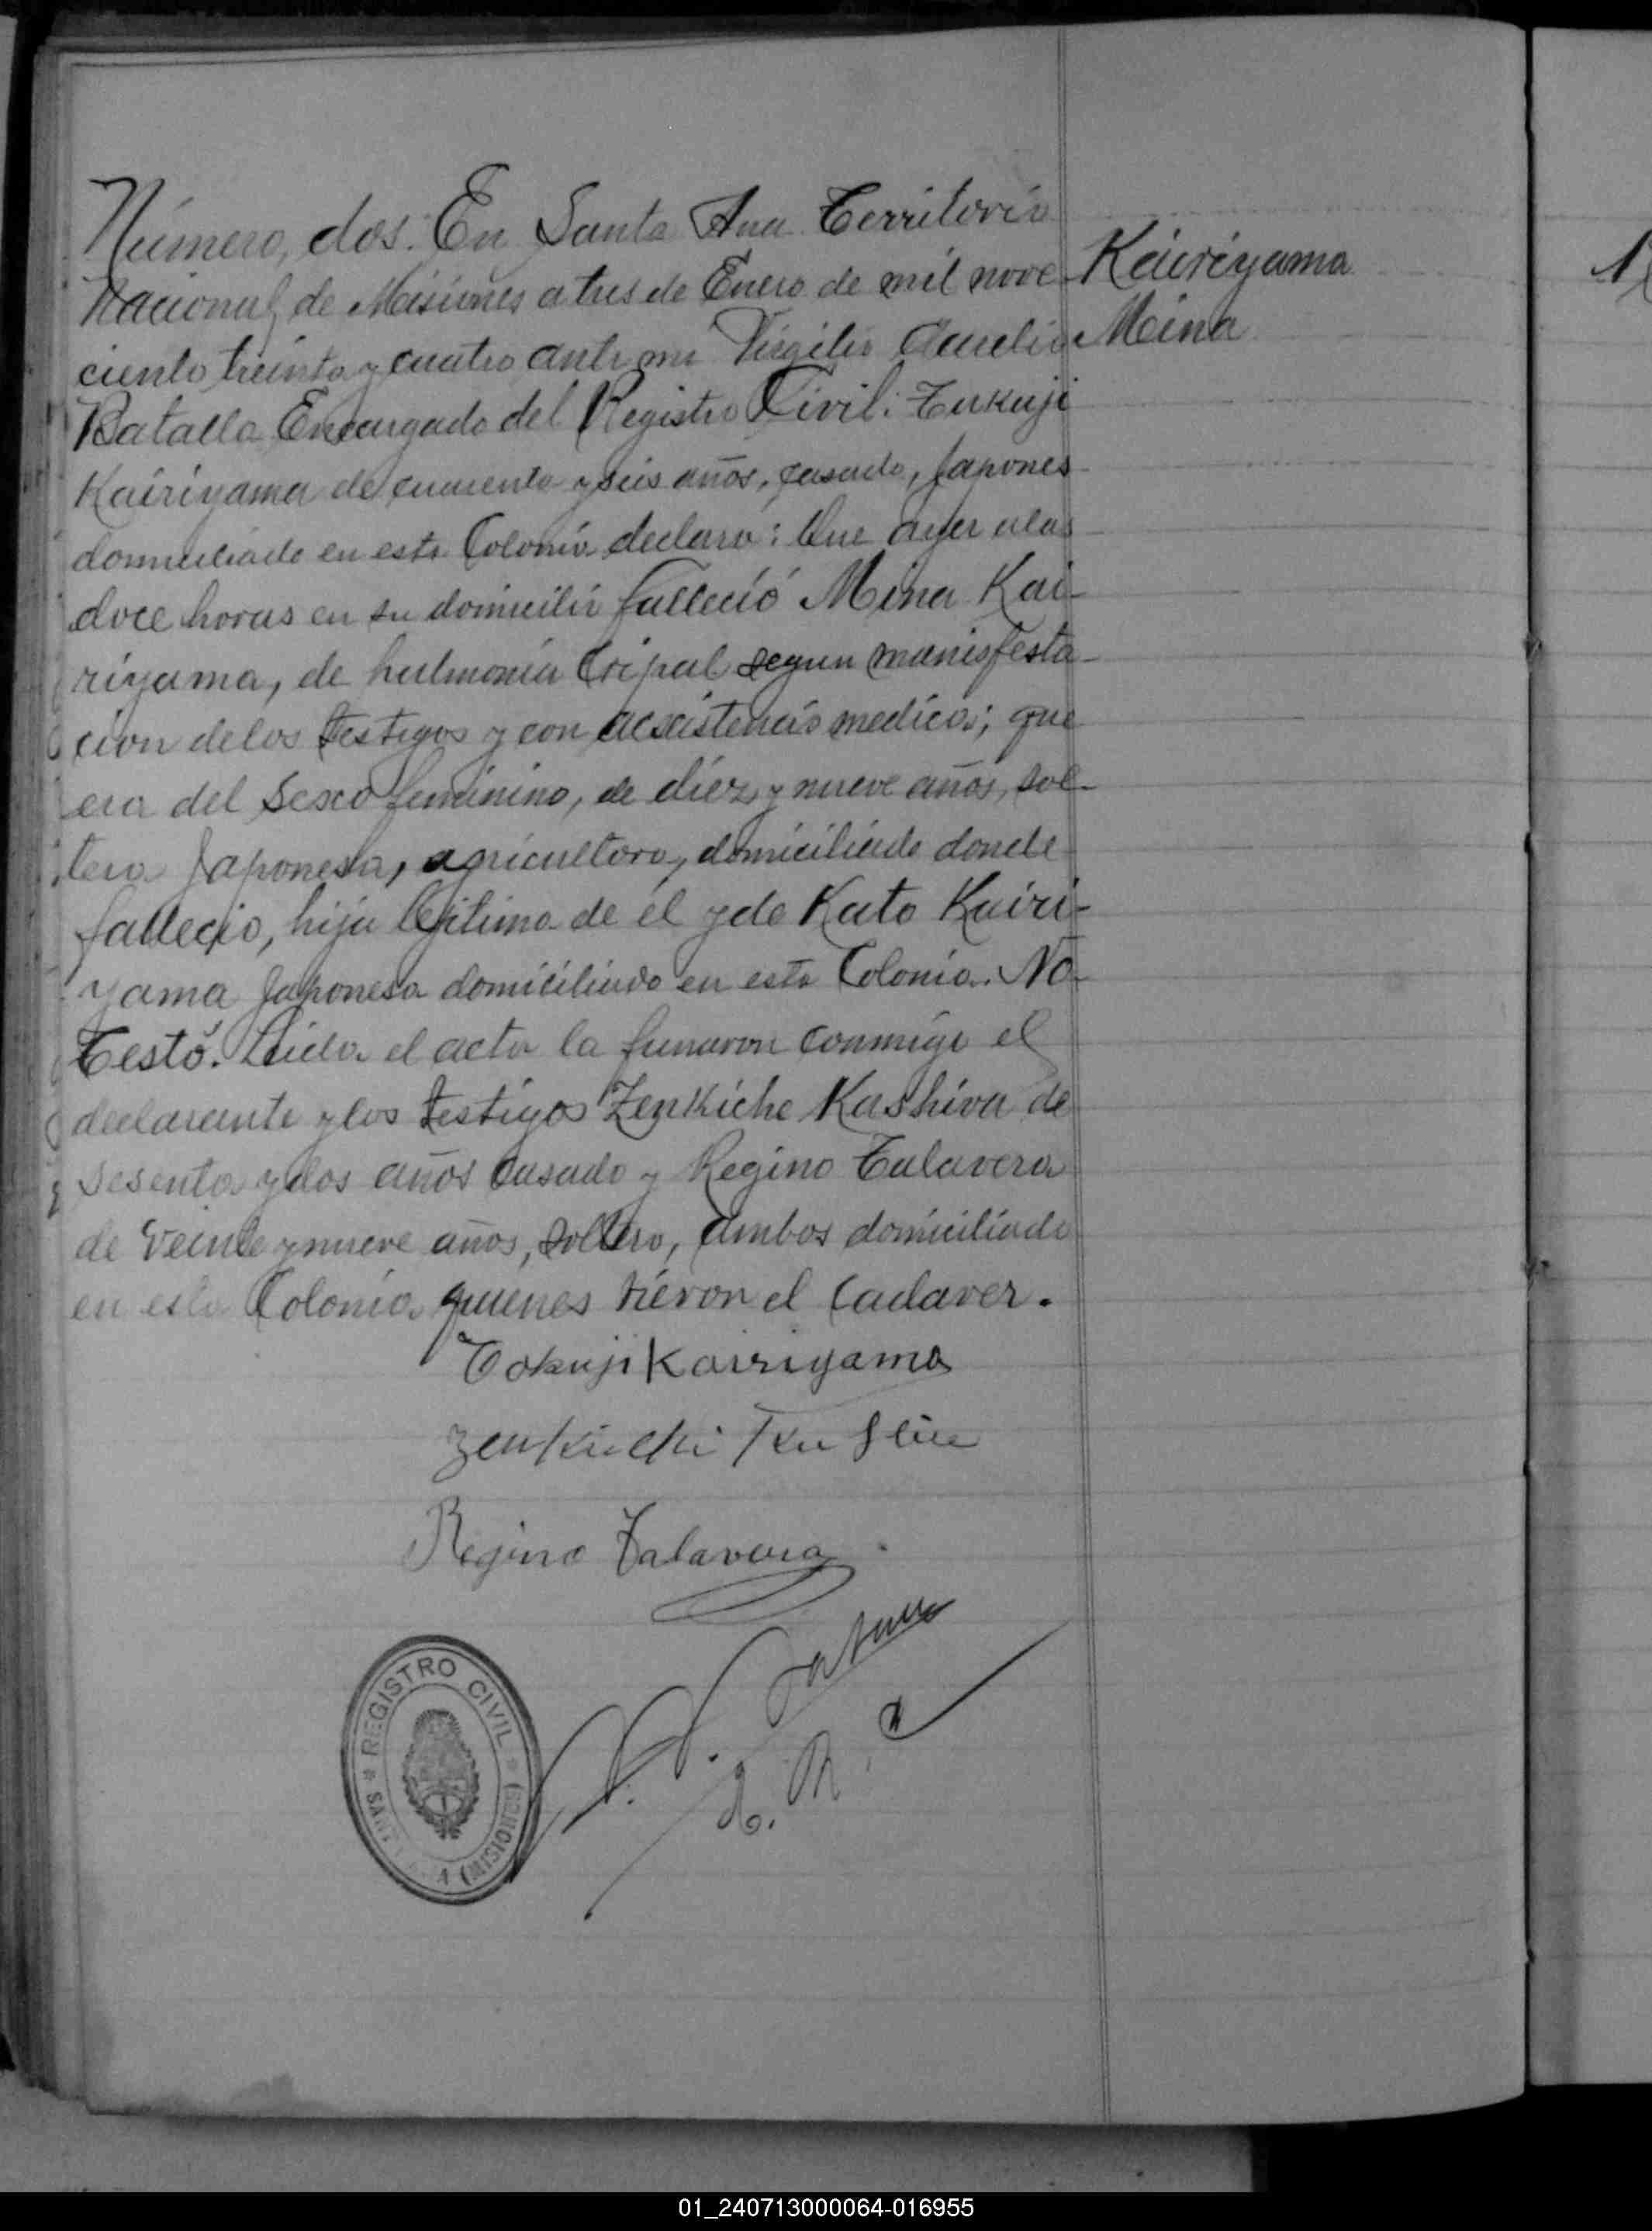 Número, dos. En Santa Ana Territorio
Nacional de Misiones a tres de Enero de mil nove
Kairiyama
ciento treinta y cuatro ante mi Virgilio Aurelio
Mina
Batalla Encargado del Registro Civil: Tukuji
Kairiyama de cuarenta y seis años, casado, Japones
domiciliado en esta Colonia declaró: Que ayer a las
doce horas en su domicilio falleció Mina Kai-
riyama, de hulmonia Gripal segun manisfesta-
cion de los testigos y con acsistencia medica; que
era del sexo femenino, de diez y nueve años, sol-
tera Japonesa, agricultora, domiciliada donde
fallecio, hija legitima de él y de Kato Kairi-
yama Japonesa domiciliada en esta Colonia. No
Testó. Leida el acta la firmaron conmigo el
declarante y los testigos Zenkiche Kashiva de
sesenta y dos años casado y Regino Talavera
de veinte y nueve años, soltero, ambos domiciliado
en esta Colonia quienes vieron el Cadaver.
Tokuji Kairiyama
Zenkuchi
Regino Talavera
REGISTRO CIVIL
SANTA ANA (MISIONES)
01_240713000064-016955